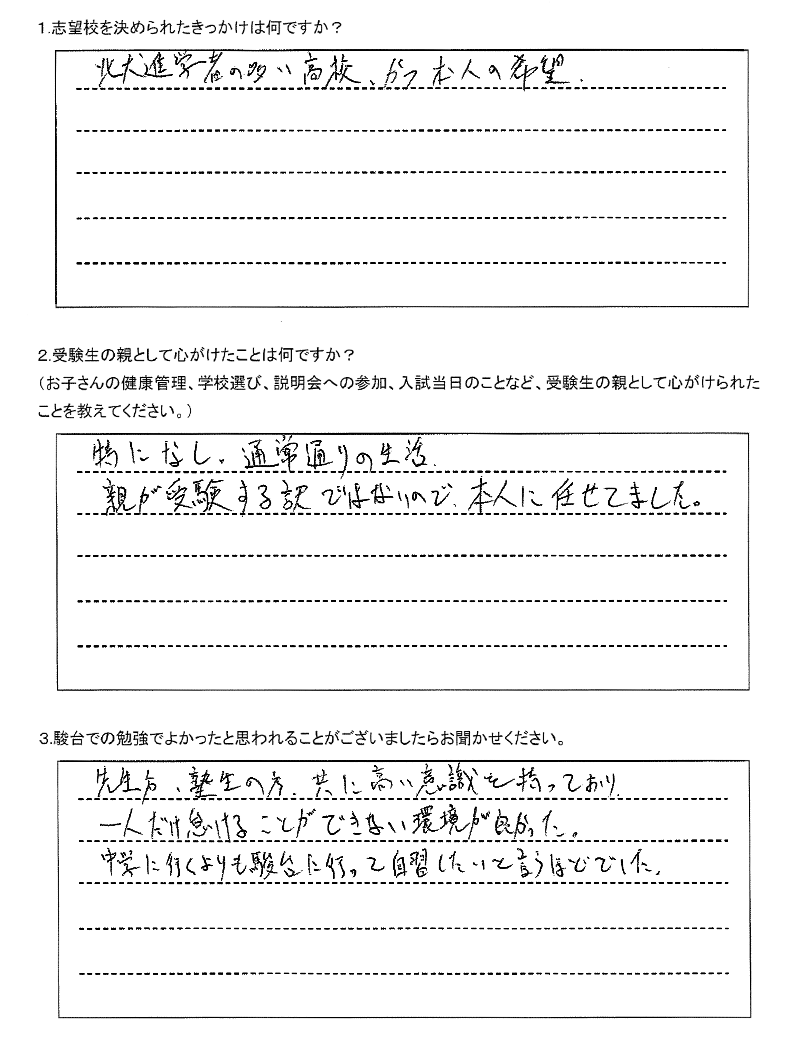 1.志望校を決められたきっかけは何ですか？
北大進学者の多い高校、かつ本人の希望.
2.受験生の親として心がけたことは何ですか？
（お子さんの健康管理、学校選び、説明会への参加、入試当日のことなど、受験生の親として心がけられた
ことを教えてください。）
特になし。通常通りの生活.
親が受験する訳ではないので、本人に任せてました。
3.駿台での勉強でよかったと思われることがございましたらお聞かせください。
先生方、塾生の方、共に高い意識を持っており
一人だけ怠けることができない環境が良かった。
中学に行くよりも駿台に行って自習したいと言うほどでした.